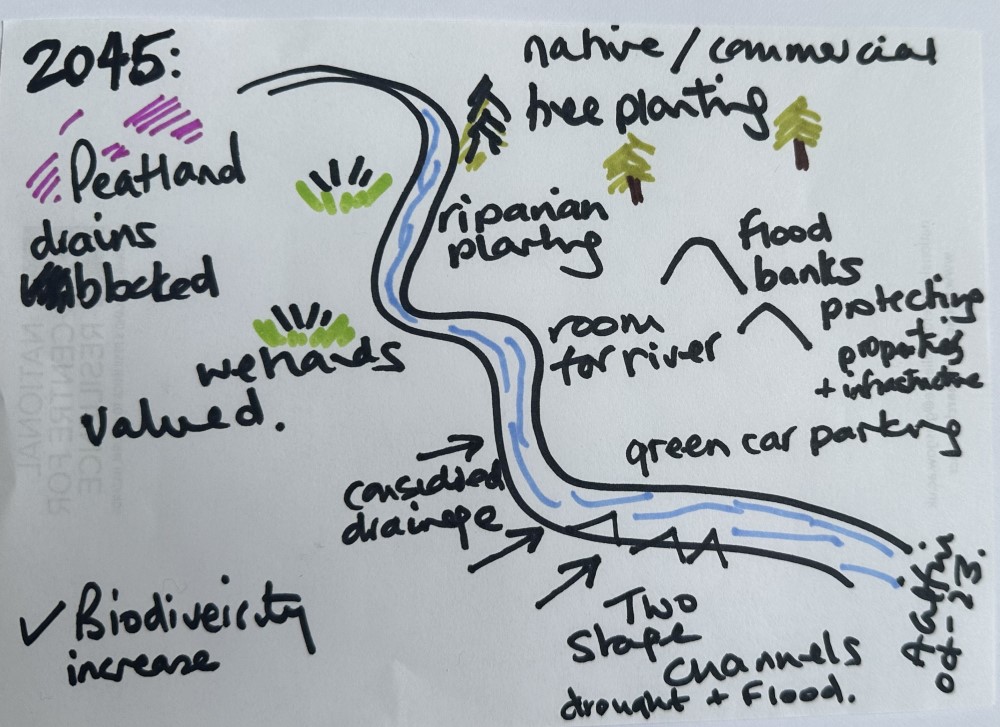 2045:
native / commercial
tree planting
Peatland
drains
blocked
riparian
planting
flood
banks
protecting
properties
+ infrastructure
room
for river
wetlands
valued.
green car parking
considered
drainage
Two
Stage
Channels
drought + Flood.
✓ Biodiveicity
increase
Oct-23.
NATIONAL
CENTRE FOR
RESILIENCE